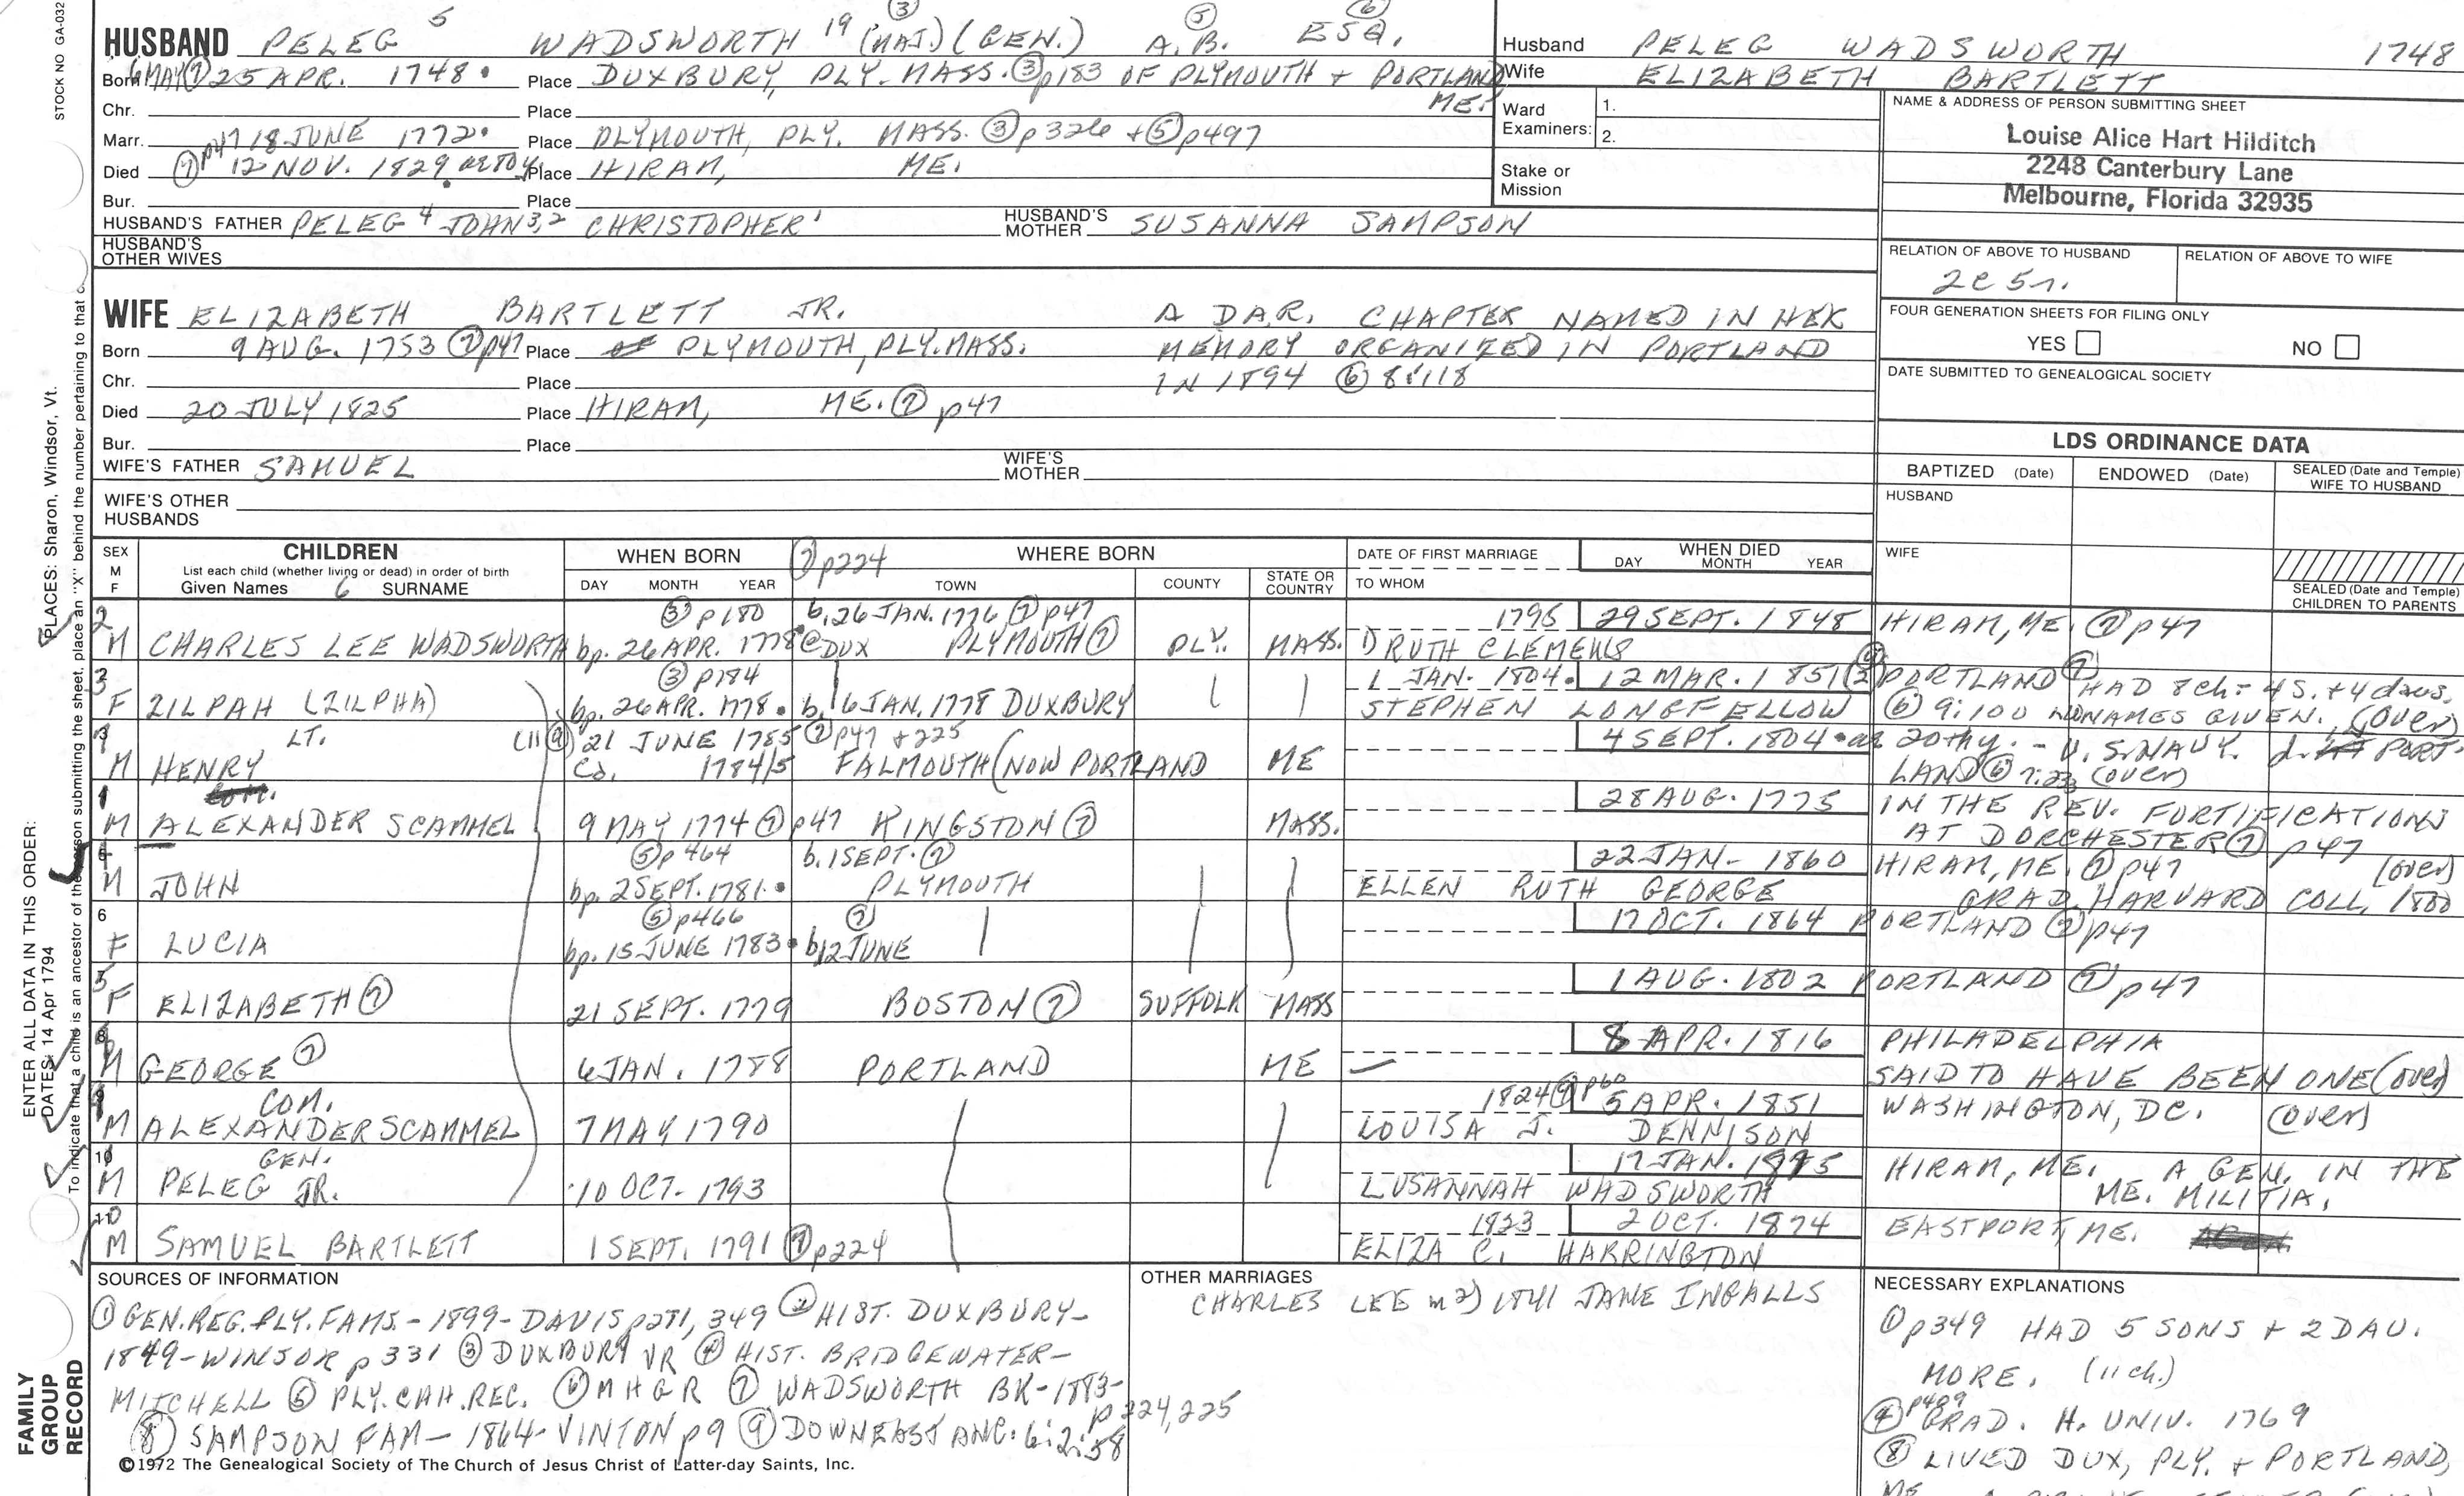 STOCK NO GA-032
HUSBAND PELEG 5 WADSWORTH 19 (MAJ.) (GEN.) ③ A.B. ⑤ ESQ. ⑥
Born 6 MAY ⑦ 25 APR. 1748. Place DUXBURY, PLY. MASS. ③ p183 OF PLYMOUTH + PORTLAND ME.
Chr. Place
Marr. p47 18 JUNE 1772. Place PLYMOUTH, PLY. MASS. ③ p326 + ⑤ p497
Died ⑦ 12 NOV. 1829 ae 80y. Place HIRAM, ME.
Bur. Place
HUSBAND'S FATHER PELEG 4 JOHN 3,2 CHRISTOPHER 1 HUSBAND'S MOTHER SUSANNA SAMPSON
HUSBAND'S OTHER WIVES
Husband PELEG WADSWORTH 1748
Wife ELIZABETH BARTLETT
Ward Examiners: 1.
2.
Stake or Mission
NAME & ADDRESS OF PERSON SUBMITTING SHEET
Louise Alice Hart Hilditch
2248 Canterbury Lane
Melbourne, Florida 32935
RELATION OF ABOVE TO HUSBAND RELATION OF ABOVE TO WIFE
2c 5r.
FOUR GENERATION SHEETS FOR FILING ONLY
YES NO
DATE SUBMITTED TO GENEALOGICAL SOCIETY
WIFE ELIZABETH BARTLETT JR. A D.A.R. CHAPTER NAMED IN HER
Born 9 AUG. 1753 ⑦ p47 Place PLYMOUTH, PLY. MASS. MEMORY ORGANIZED IN PORTLAND
Chr. Place IN 1894 ⑥ 8:118
Died 20 JULY 1825 Place HIRAM, ME. ⑦ p47
Bur. Place
WIFE'S FATHER SAMUEL WIFE'S MOTHER
WIFE'S OTHER HUSBANDS
LDS ORDINANCE DATA
BAPTIZED (Date) ENDOWED (Date) SEALED (Date and Temple) WIFE TO HUSBAND
HUSBAND
WIFE
SEALED (Date and Temple) CHILDREN TO PARENTS
SEX M F CHILDREN WHEN BORN ⑦ p224 WHERE BORN DATE OF FIRST MARRIAGE WHEN DIED
List each child (whether living or dead) in order of birth
Given Names 6 SURNAME DAY MONTH YEAR TOWN COUNTY STATE OR COUNTRY TO WHOM DAY MONTH YEAR
2 ③ p180 b. 26 JAN. 1776 ⑦ p47 1795 29 SEPT. 1848 HIRAM, ME. ⑦ p47
M CHARLES LEE WADSWORTH bp. 26 APR. 1778 @ DUX PLYMOUTH ⑦ PLY. MASS. RUTH CLEMENS
3 ③ p184 1 JAN. 1804. 12 MAR. 1851 ② PORTLAND ⑦ HAD 8 ch - 4 S. + 4 daus.
F ZILPAH (ZILPHA) bp. 26 APR. 1778. b. 6 JAN. 1778 DUXBURY STEPHEN LONGFELLOW ⑥ 9:100 NAMES GIVEN. (over)
LT. 21 JUNE 1785 ⑦ p47 + 225 4 SEPT. 1804. ae 20thy. - U.S. NAVY. d. PORT-
M HENRY Cd. 1784/5 FALMOUTH (NOW PORTLAND ME LAND ⑥ 7:23 (over)
1 28 AUG. 1775 IN THE REV. FORTIFICATIONS
M ALEXANDER SCAMMEL 9 MAY 1774 ⑦ p47 KINGSTON ⑦ MASS. AT DORCHESTER ⑦ p47
⑤ p464 b. 1 SEPT. ⑦ 22 JAN - 1860 HIRAM, ME. ⑦ p47 (over)
M JOHN bp. 2 SEPT. 1781. PLYMOUTH ELLEN RUTH GEORGE GRAD. HARVARD COLL. 1800
6 ⑤ p466 ⑦ 17 OCT. 1864 PORTLAND ⑦ p47
F LUCIA bp. 15 JUNE 1783. b. 12 JUNE
1 AUG. 1802 PORTLAND ⑦ p47
F ELIZABETH ⑦ 21 SEPT. 1779 BOSTON ⑦ SUFFOLK MASS
8 8 APR. 1816 PHILADELPHIA
M GEORGE ⑦ 6 JAN. 1788 PORTLAND ME — SAID TO HAVE BEEN ONE (over)
9 COM. 1824 ⑨ p60 5 APR. 1851 WASHINGTON, DC. (over)
M ALEXANDER SCAMMEL 7 MAY 1790 LOUISA J. DENNISON
10 GEN. 17 JAN. HIRAM, ME. A GEN. IN THE
M PELEG JR. 10 OCT - 1793 LUSANNAH WADSWORTH ME. MILITIA.
1823 2 OCT. 1874 EASTPORT, ME.
M SAMUEL BARTLETT 1 SEPT. 1791 ⑦ p224 ELIZA C. HARRINGTON
SOURCES OF INFORMATION
① GEN. REG. PLY. FAMS. - 1899 - DAVIS p281, 349 ② HIST. DUXBURY -
1849 - WINSOR p 331 ③ DUXBURY VR ④ HIST. BRIDGEWATER -
MITCHELL ⑤ PLY. CAH. REC. ⑥ M H G R ⑦ WADSWORTH BK - 1883 -
p 224, 225
⑧ SAMPSON FAM - 1864 - VINTON p9 ⑨ DOWNEAST ANC. 6:2:58
©1972 The Genealogical Society of The Church of Jesus Christ of Latter-day Saints, Inc.
OTHER MARRIAGES
CHARLES LEE m 2) 1841 JANE INGALLS
NECESSARY EXPLANATIONS
① p349 HAD 5 SONS + 2 DAU.
MORE. (11 ch.)
④ p409 GRAD. H. UNIV. 1769
⑧ LIVED DUX, PLY. + PORTLAND,
ENTER ALL DATA IN THIS ORDER:
DATES: 14 Apr 1794
PLACES: Sharon, Windsor, Vt.
To indicate that a child is an ancestor of the person submitting the sheet, place an "X" behind the number pertaining to that
FAMILY GROUP RECORD